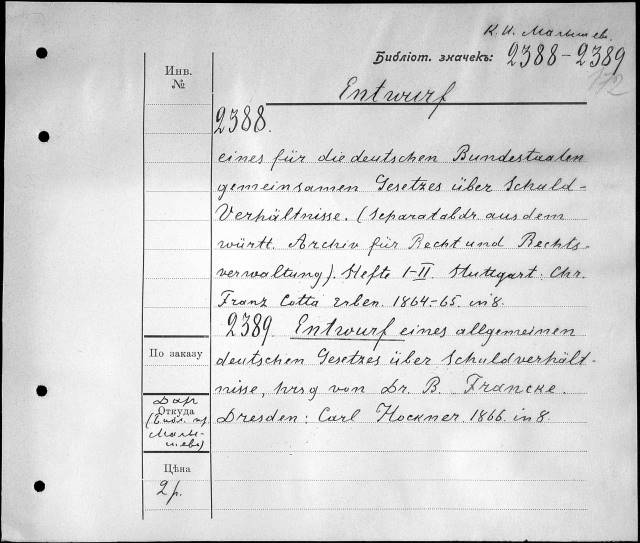 К. И. Малышев.
Библіот. значекъ: 2388-2389
172
Инв.
№
Entwurf
2388.
eines für die deutschen Bundestaaten
gemeinsamen Gesetzes über Schuld-
Verhältnisse. (Separatabdr. aus dem
württ. Archiv für Recht und Rechts-
verwaltung). Hefte I-II. Stuttgart: Chr.
Franz Cotta erben. 1864-65. in 8.
2389. Entwurf eines allgemeinen
deutschen Gesetzes über Schuldverhält-
nisse, hrsg von Dr. B. Francke.
Dresden: Carl Höckner. 1866. in 8.
По заказу
Даръ
Откуда
(Библ. пр.
Малы-
шева)
Цѣна
2 р.